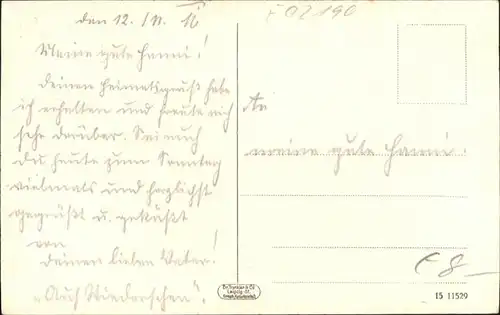 den 12./11. 16
Meine gute Hanni!
Deinen Heimatsgruß habe
ich erhalten und freute mich
sehr darüber. Sei auch
Du heute zum Sonntag
vielmals und herzlichst
gegrüßt u. geküßt
von
Deinem lieben Vater!
"Auch Wiedersehen".
An
meine gute Hanni.
Dr. Trenkler & Co.
Leipzig-St.
15 11529